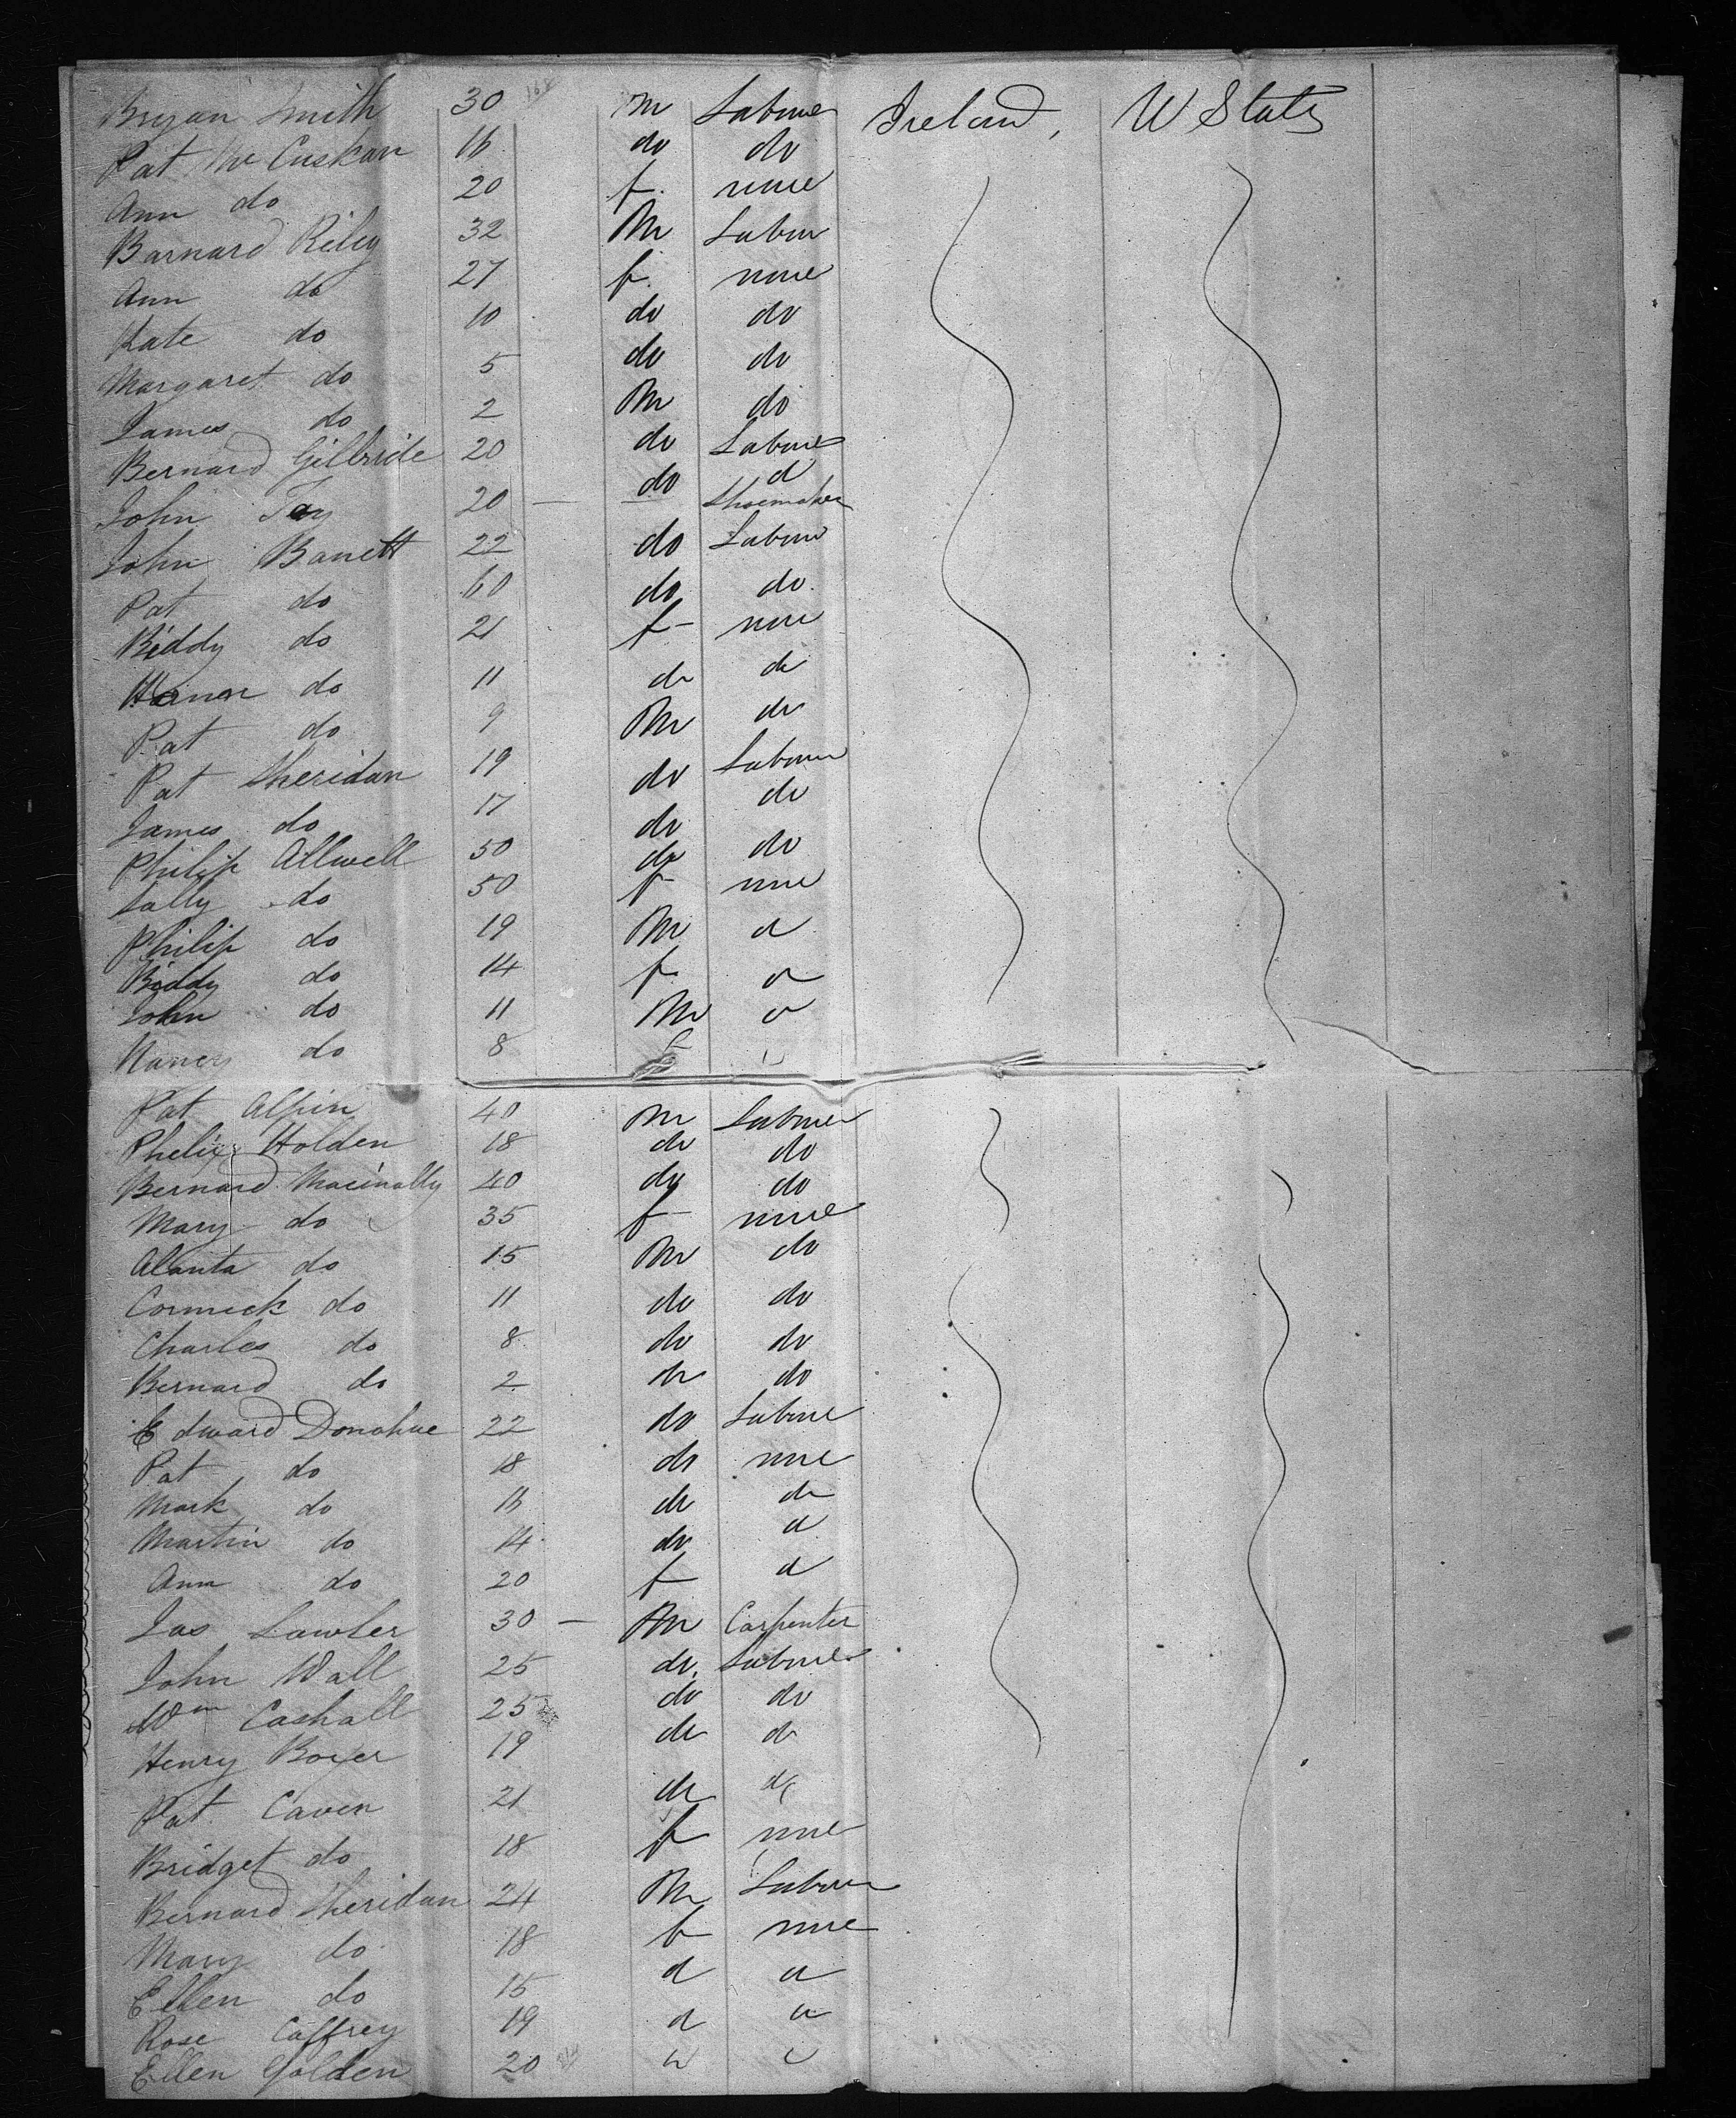 Bryan Smith 30 m Labourer Ireland, U States
Pat Mc Cuskan 16 do do
Ann do 20 f. none
Barnard Riley 32 M Labour
Ann do 27 f. none
Kate do 10 do do
Margaret do 5 do do
James do 2 M do
Bernard Gilbride 20 do Labourer
John Foy 20 — do d Shoemaker
John Barrett 22 do Labour
Pat do 60 do do
Biddy do 21 f none
do 11 do do
Pat do 9 M do
Pat Sheridan 19 do Labourer
James do 17 do do
Philip Allwell 50 do do
Sally do 50 f none
Philip do 19 M d
Biddy do 14 f d
John do 11 M d
Nancy do 8 f
Pat Alpin 40 M Labourer
Phelix Holden 18 do do
Bernard Macinally 40 do do
Mary do 35 f none
do 15 M do
Cormick do 11 do do
Charles do 8 do do
Bernard do 2 do do
Edward Donohue 22 do Laboure
Pat do 18 do none
Mark do 16 do do
Martin do 14 do d
Ann do 20 f d
Jas Lawler 30 — M Carpenter
John Wall 25 do Labourer
Wm Cashall 25 do do
Henry Boyer 19 do do
Pat Caven 21 do do
Bridget do 18 f none
Bernard Sheridan 24 M Labourer
Mary do 18 f none
Ellen do 15 d d
Rose Caffrey 19 d d
Ellen Golden 20